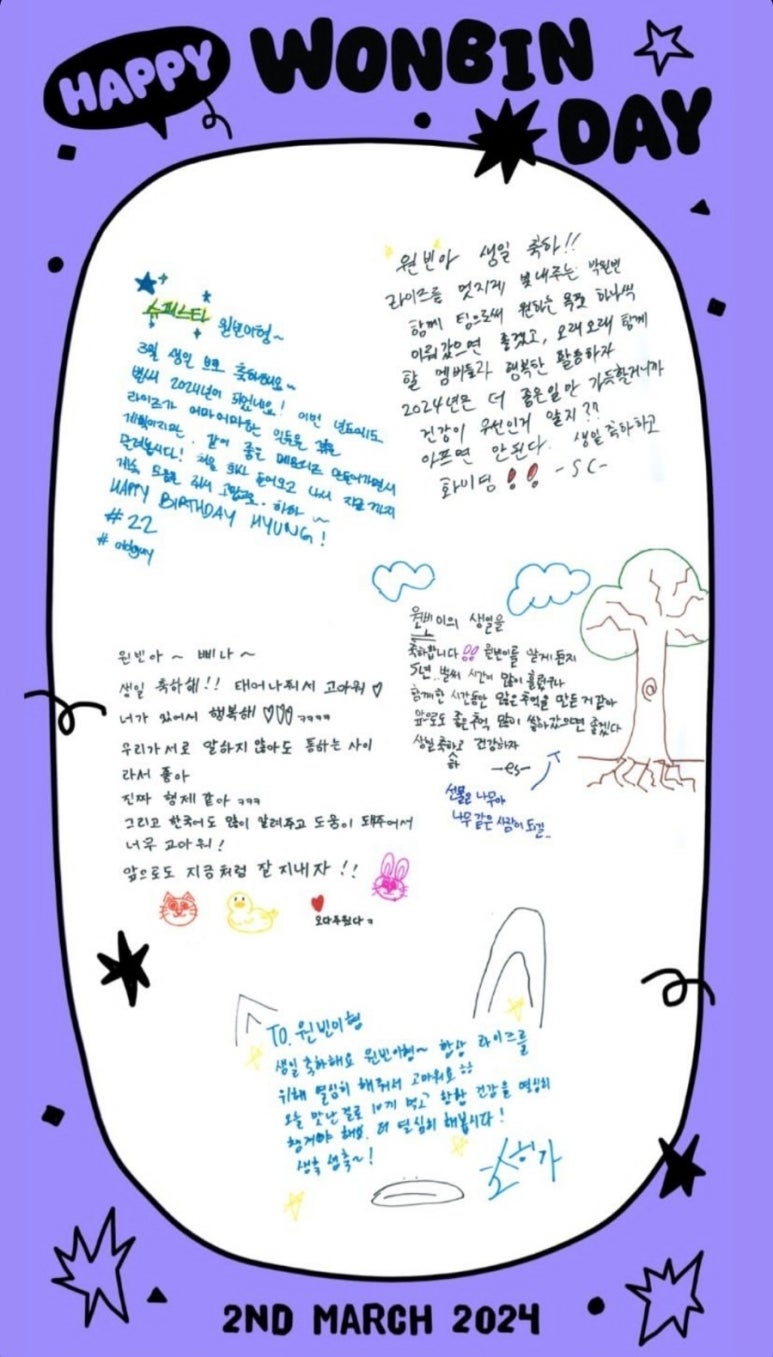 HAPPY WONBIN
DAY
수퍼스타 원빈이형~
3월 생일 축하해요~
벌써 2024년이 되었네요! 이번 년도에도
라이즈가 어마어마한
같이 좋은 메모리즈 만들어가면서
달려봅시다! 지금까지
HAPPY BIRTHDAY HYUNG!
#22
# oldguy
원빈아 생일 축하!!
라이즈를 멋지게 빛내주는 박원빈
함께 팀으로써 원하는 목표 하나씩
이뤄갔으면 좋겠고, 오래오래 함께
할 멤버들과 행복한 활동하자
2024년은 더 좋은일만 가득할거니까
건강이 우선인거 알지??
아프면 안된다. 생일축하하고
화이팅!! -SC-
원빈이의 생일을
축하합니다!! 원빈이를 알게된지
5년.. 벌써 시간이 많이 흘렀구나
함께한 시간동안 많은추억을 만든거같아
앞으로도 좋은추억 많이 쌓아갔으면 좋겠다
생일축하하고 건강하자
-es-
선물은 나무야
나무같은 사람이 되길..
원빈아~ 삐나~
생일 축하해!! 태어나줘서 고마워♡
너가 있어서 행복해♡♡♡ ㅋㅋㅋㅋ
우리가 서로 말하지 않아도 통하는 사이
라서 좋아
진짜 형제 같아 ㅋㅋㅋ
그리고 한국어도 많이 알려주고 도움이 돼주어서
너무 고마워!
앞으로도 지금처럼 잘 지내자!!
오다주웠다ㅋ
TO. 원빈이형
생일 축하해요 원빈이형~ 항상 라이즈를
위해 열심히 해줘서 고마워요
오늘 맛난걸로 10끼 먹고 항상 건강을 열심히
챙겨야 해요. 더 열심히 해봅시다!
생축 생축~!
2ND MARCH 2024